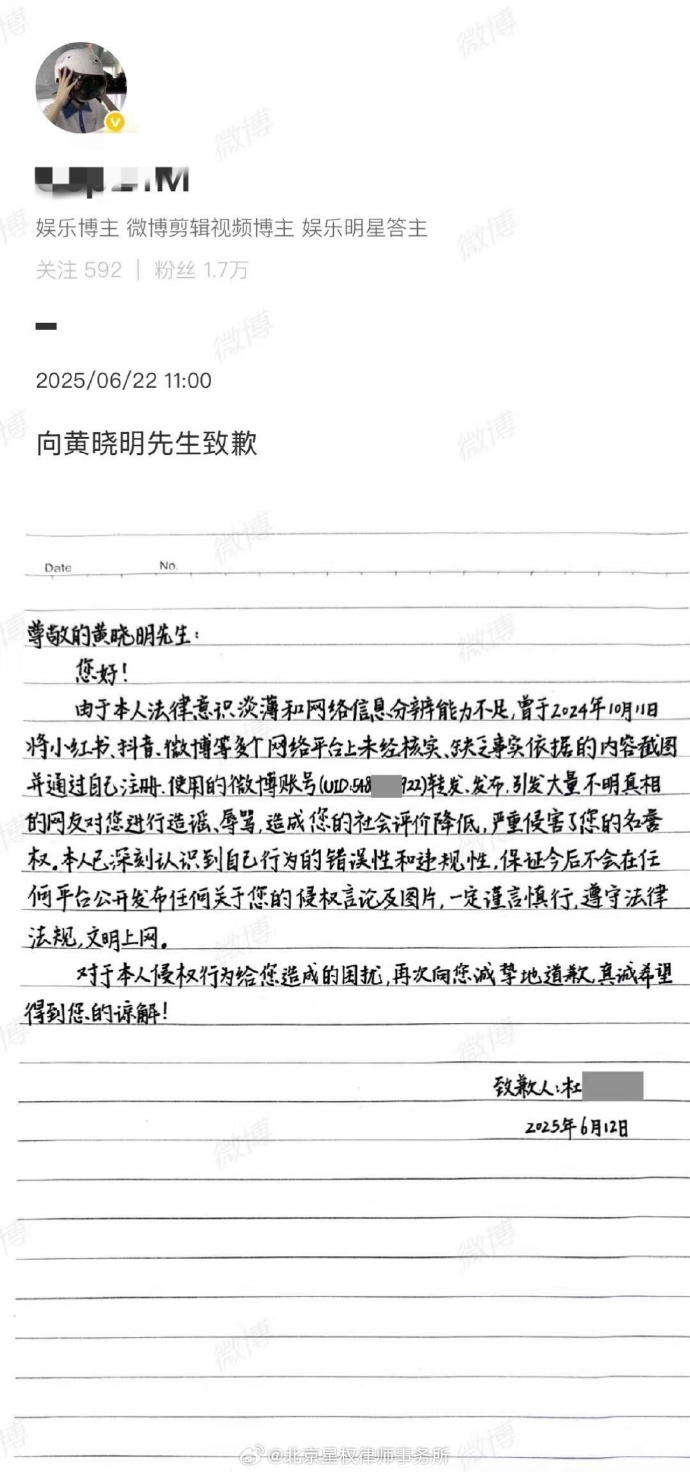 娱乐博主 微博剪辑视频博主 娱乐明星答主
关注 592 | 粉丝 1.7万
2025/06/22 11:00
向黄晓明先生致歉
Date No.
尊敬的黄晓明先生:
您好!
由于本人法律意识淡薄和网络信息分辨能力不足,曾于2024年10月11日
将小红书、抖音、微博等多个网络平台上未经核实、缺乏事实依据的内容截图
并通过自己注册、使用的微博账号(UID:548 922)转发、发布,引发大量不明真相
的网友对您进行造谣、辱骂,造成您的社会评价降低,严重侵害了您的名誉
权。本人已深刻认识到自己行为的错误性和违规性,保证今后不会在任
何平台公开发布任何关于您的侵权言论及图片,一定谨言慎行,遵守法律
法规,文明上网。
对于本人侵权行为给您造成的困扰,再次向您诚挚地道歉,真诚希望
得到您的谅解!
致歉人:杜
2025年6月12日
@北京星权律师事务所
微博